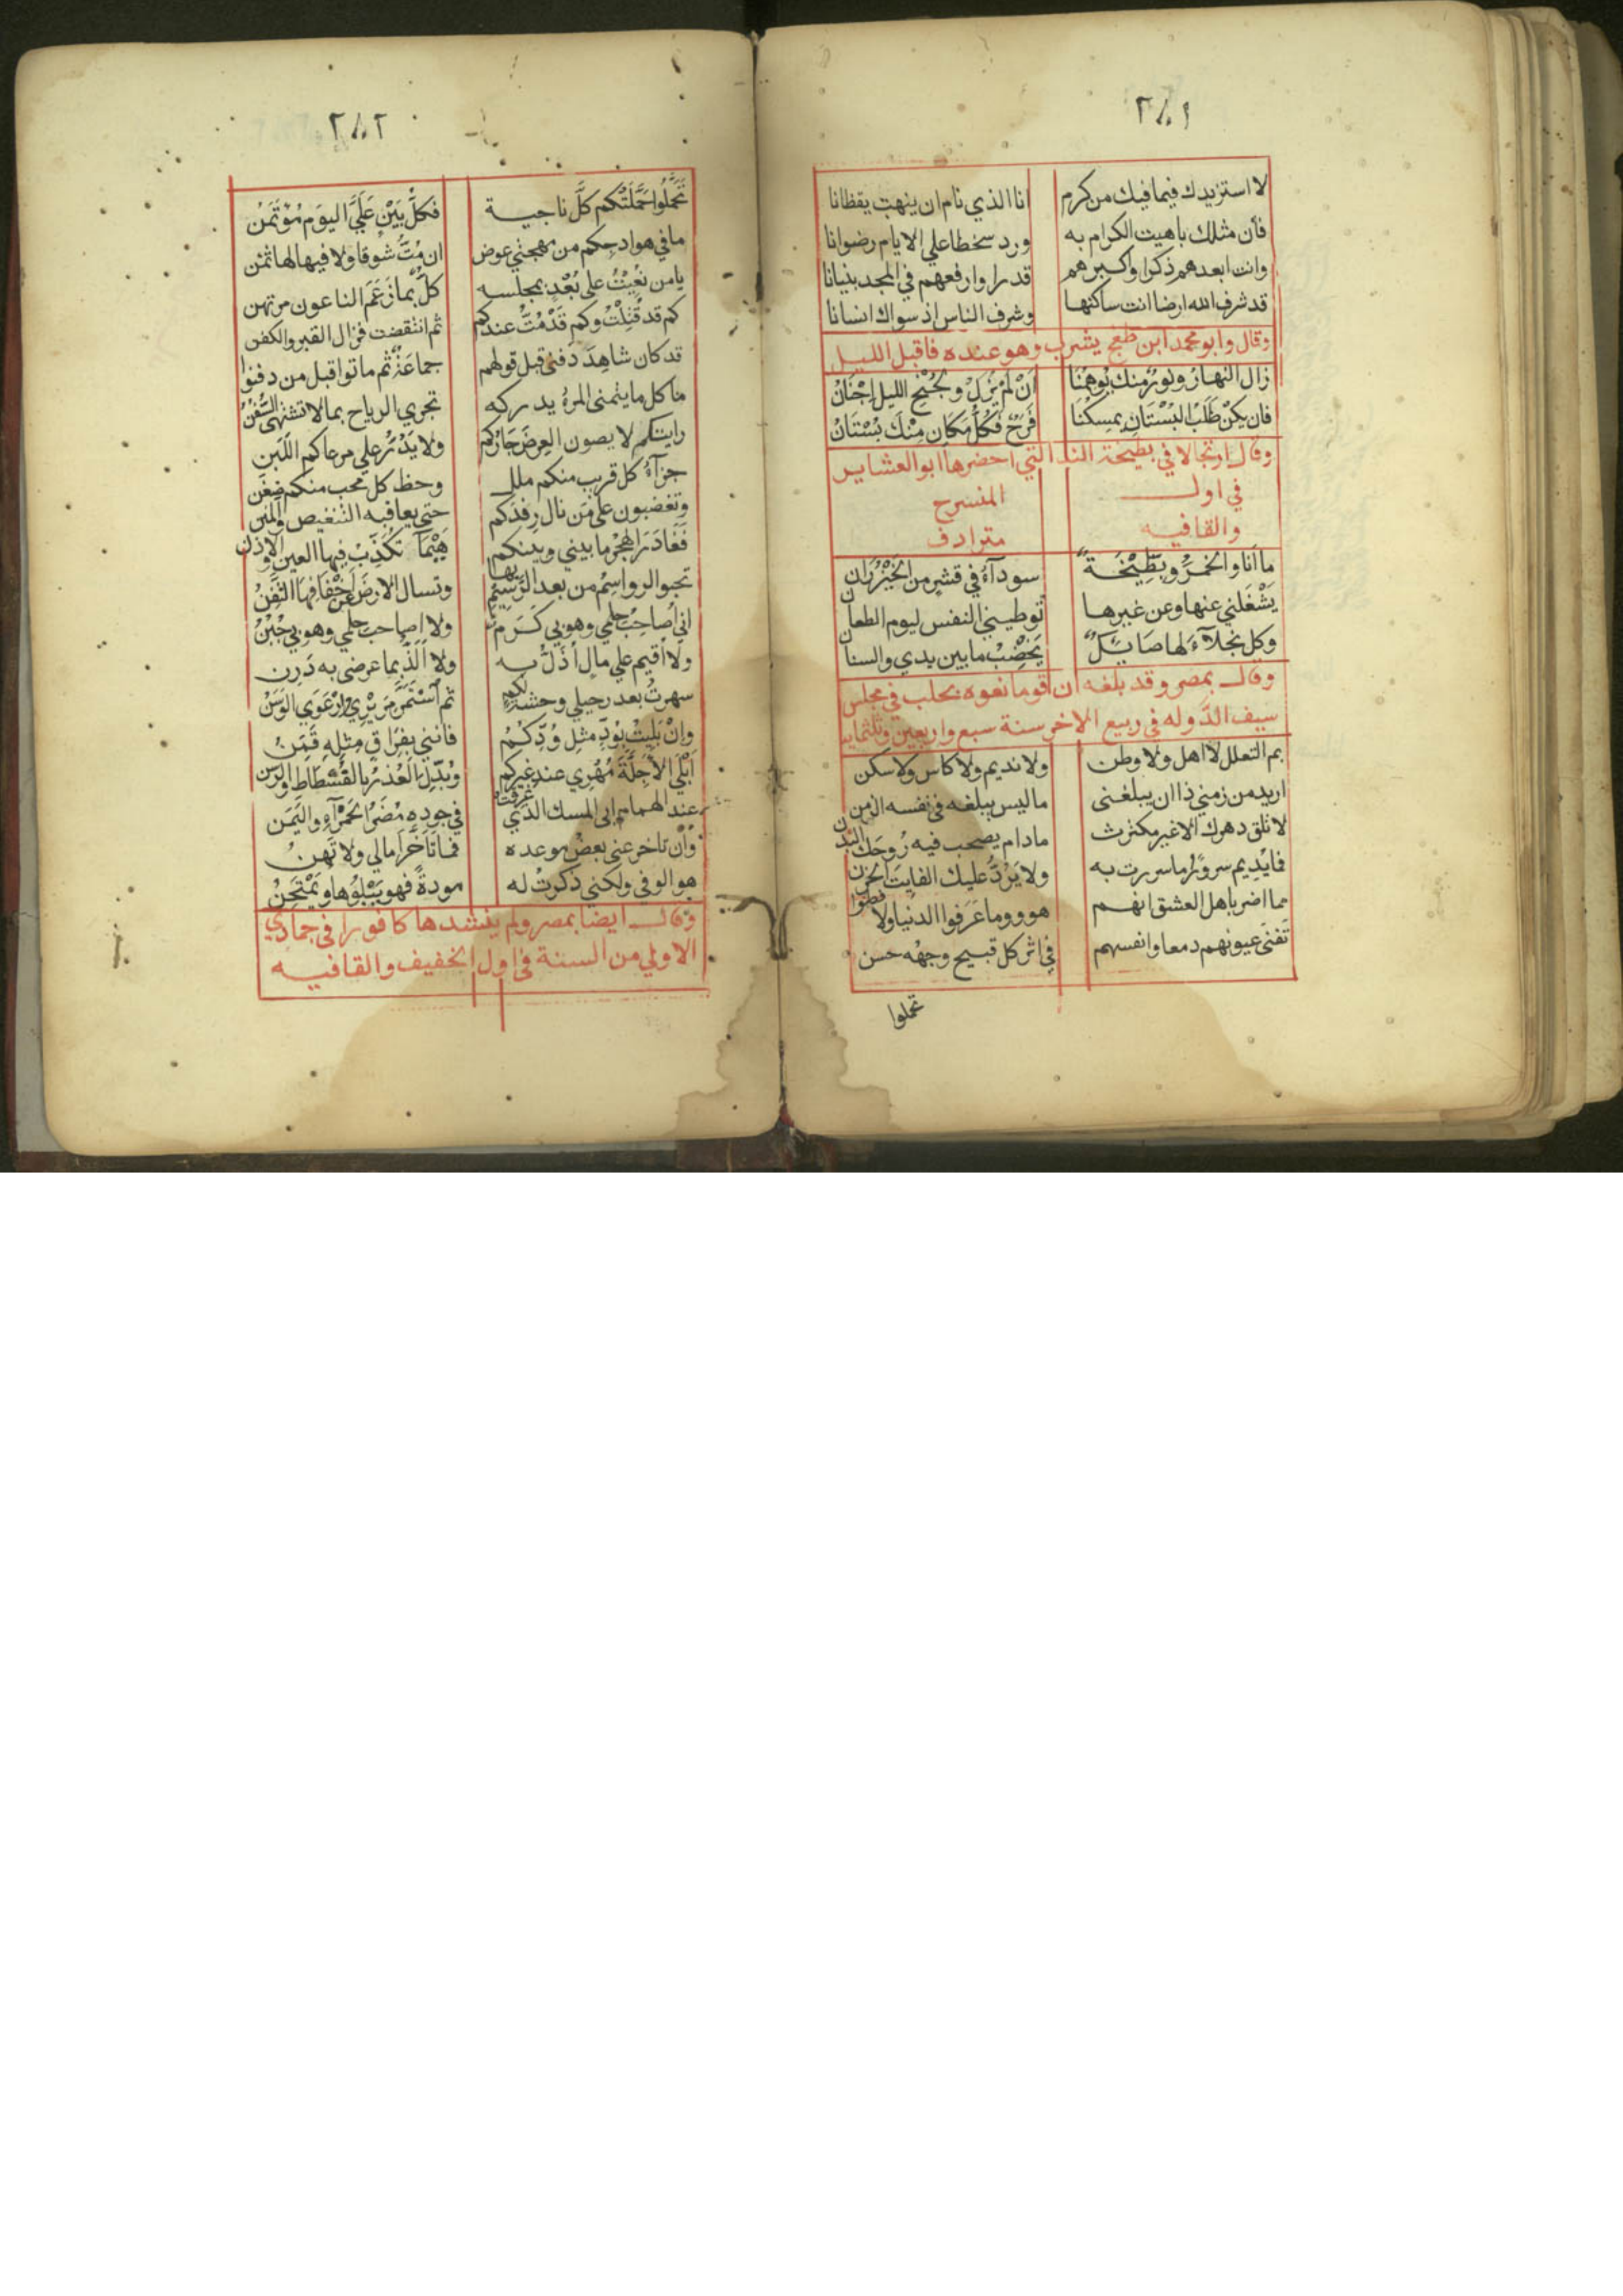 ٢٨١
لا استزيدك فيما فيك من كرم انا الذي نام ان ينهت يقظانا
فأن مثلك باهيت الكرام به ورد سخطا علي الايام رضوانا
وانت ابعدهم ذكرا واكبرهم قدرا وارفعهم في المجد بنيانا
قد شرف الله ارضا انت ساكنها وشرف الناس اذ سواك انسانا
وقال وابو محمد ابن طغج يشرب وهو عنده فاقبل الليل
زال النهارُ ونورٌ منك يُوهِمُنا اَنْ لَمْ يَزُلْ ولِجُنْحِ الليلِ اِجْنَانُ
فان يكنْ طَلَبُ البُسْتَانِ يمسِكُنَا فَرُحْ فَكُلُّ مَكَانٍ مِنْكَ بُسْتَانُ
وقال ارتجالا في بطيخة الند التي احضرها ابو العشاير
في اول المنسرح
والقافيه مترادف
ما اَنا والخمرُ وبِطِّيْخَةً سودآءُ في قشرٍ من الخَيْزُرَان
يَشْغَلني عنها وعن غيرها توطيني النفس ليوم الطعان
وكل نجلآءَ لها صَايِكٌ يَخْضِبُ ما بين يدي والسنا
وقال بمصر وقد بلغه ان قوما نعوه بحلب في مجلس
سيف الدوله في ربيع الاخر سنة سبع واربعين وثلثمايه
بم التعلل لا اهل ولا وطن ولا نديم ولا كاس ولا سكن
اريد من زمني ذا ان يبلغنى ما ليس يبلغه فى نفسه الزمن
لا تلق دهرك الا غير مكترث مادام يصحب فيه رُوحَكَ البدن
فما يُدِيم سرورٌ ما سررت به ولا يَرُدُّ عليك الفايتَ الحزن
مما اضر باهل العشق انهم هووا وما عَرَفوا الدنيا ولا فطنوا
تَفنى عيونهم دمعا وانفسهم في اثر كل قبيح وجهه حسن
تحملوا
٢٨٢
تَحَمَّلُوا حَمَلَتْكُم كلُّ ناجية فكلُّ بَيْنٍ عَلَيَّ اليوم مُؤْتَمَنُ
ما في هوادجكم من مهجتي عوض ان مُتُّ شوقا ولا فيها لها ثمن
يا من نُعِيْتُ علي بُعْدٍ بمجلسه كلٌّ بما زَعَمَ الناعون مرتهن
كم قد قُتِلْتُ وكم قَدْ مُتُّ عندكم ثم انتقضت فزال القبر والكفن
قد كان شاهِدَ دفنى قبل قولهم جماعَةٌ ثم ماتوا قبل من دفنوا
ما كل ما يتمنى المرءُ يدركه تجري الرياح بما لا تشتهى السُفُنُ
رايتكم لا يصون العِرضَ جَارُكم ولا يَدُرُّ علي مرعاكم اللَّبَن
جزآءُ كل قريب منكم ملل وحظ كل محب منكم ضغن
وتغضبون علي مَن نال رفدَكم حتى يعاقبه التنغيص والمنن
فَغَادَرَ الهجْرُ ما بيني وبينكم يَهْمَآ تَكْذِبُ فيها العين والاذن
تحبوا الرواسِمُ من بعد الرَسِيْمِ بها وتسال الارضَ عن اَخْفَافِهَا الثَفِنُ
اني اُصَاحِبُ حلمي وهو بي كَرَم ولا اصاحب حلمي وهو بي جُبُنُ
ولا اُقيم علي مالٍ اُذَلُّ به ولا اَلَذُّ بما عرضى به دَرِن
سهرتُ بعد رحيلي وحشةً لكم ثم اسْتَمَرَّ مَرِيْرِي وارْعَوَي الوَسَنُ
وان بُلِيتُ بِوُدٍّ مثلِ وُدِّكُمْ فانني بفراقٍ مثلِهِ قَمِنُ
اَبْلَي الأَجِلَّةَ مُهْرِي عند غيركم وبُدِّلَ العُذرُ بالفُسْطَاطِ والرَسَن
عند الهمام ابي المسك الذي غَرِقَتْ في جوده مُضَرُ الحمرْآءِ واليَمَن
وان تاخر عني بعضُ موعده فما تَاَخَّرَ اٰمالي ولا تَهِنُ
هو الوفى ولكني ذكرتُ له مودةً فهو يَبْلُوها ويَمْتَحِنُ
وقال ايضا بمصر ولم ينشدها كافورا فى جمادي
الاولي من السنة في اول الخفيف والقافيه